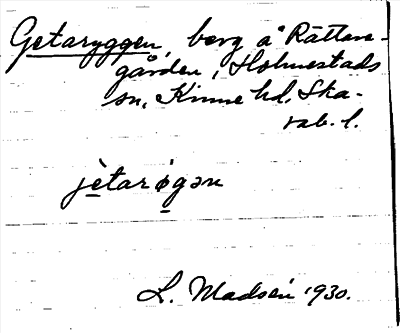 Getaryggen, berg å Rättare-
gården, Holmestads
sn, Kinne hd. Ska-
rab. l.
jètarøgən
L. Madsén 1930.